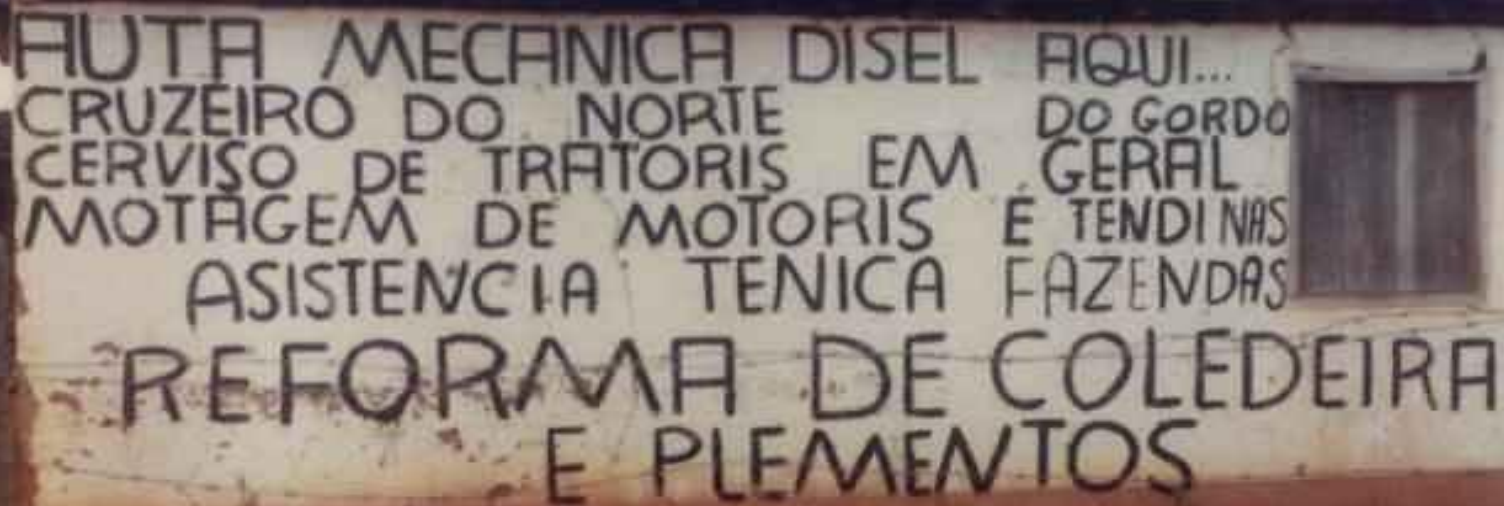 AUTA MECANICA DISEL AQUI...
CRUZEIRO DO NORTE DO GORDO
CERVISO DE TRATORIS EM GERAL
MOTAGEM DE MOTORIS E TENDINAS
ASISTENCIA TENICA FAZENDAS
REFORMA DE COLEDEIRA
E PLEMENTOS